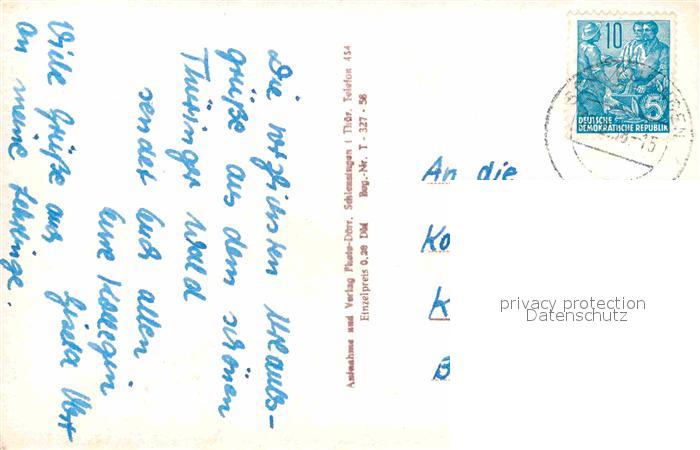 Die herzlichsten Urlaubs-
grüße aus dem schönen
Thüringer Wald
sendet Euch allen
Eure Kollegin
Gisela
Viele Grüße aus
an meine Lehrlinge.
Aufnahme und Verlag Photo-Dörr, Schleusingen i Thür. Telefon 454
Einzelpreis 0,20 DM Beg.-Nr. T - 327 - 56
10
5
DEUTSCHE
DEMOKRATISCHE REPUBLIK
An die
Ko
K
B
privacy protection
Datenschutz